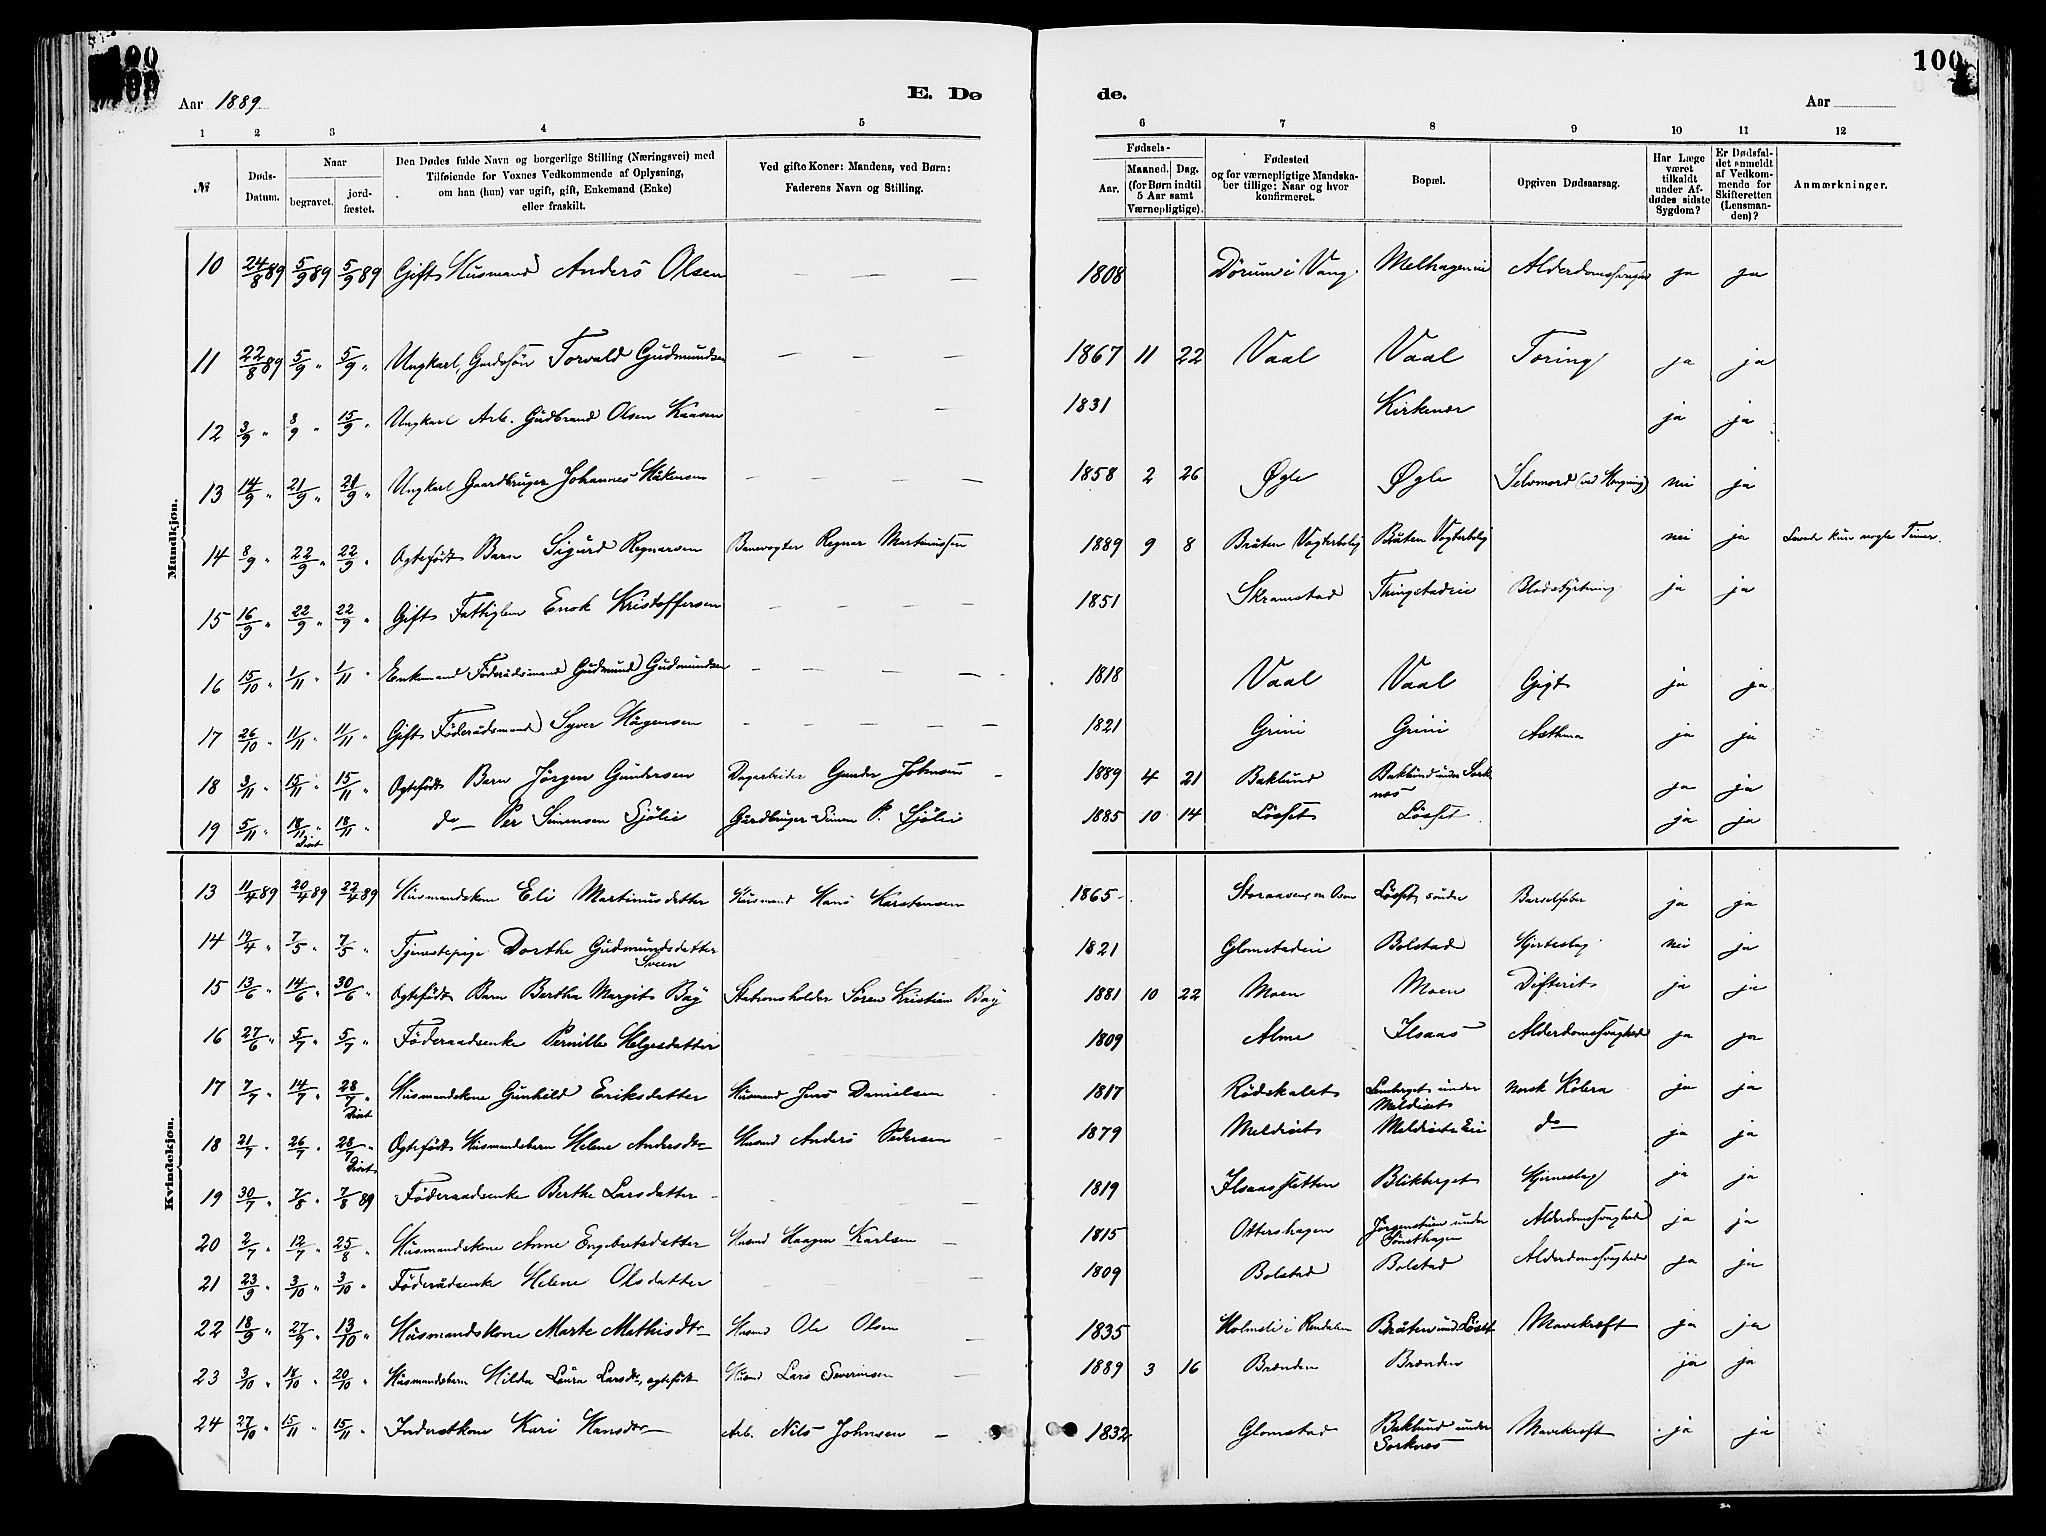 100
100
Aar 1889
E. Dø
de.
Aar
1 2 3 4 5 6 7 8 9 10 11 12
№
Døds-Datum.
Naar
begravet.
jord-fæstet.
Den Dødes fulde Navn og borgerlige Stilling (Næringsvei) med
Tilføiende for Voxnes Vedkommende af Oplysning,
om han (hun) var ugift, gift, Enkemand (Enke)
eller fraskilt.
Ved gifte Koner: Mandens, ved Børn:
Faderens Navn og Stilling.
Fødsels-
Aar.
Maaned. Dag.
(for Børn indtil
5 Aar samt
Værnepligtige).
Fødested
og for værnepligtige Mandska-
ber tillige: Naar og hvor
konfirmeret.
Bopæl.
Opgiven Dødsaarsag.
Har Læge
været
tilkaldt
under Af-
dødes sidste
Sygdom?
Er Dødsfal-
det anmeldt
af Vedkom-
mende for
Skifteretten
(Lensman-
den)?
Anmærkninger.
Mandkjøn.
10 24/8 89 5/9 89 5/9 89 Gift Husmand Anders Olsen — — — 1808 Dørum i Vang. Melhageneie Alderdomssvaghed ja ja
11 22/8 89 5/9 " 5/9 " Ungkarl, Gardssøn Torvald Gudmundsen — — — 1867 11 22 Vaal Vaal Tæring ja ja
12 3/9 " 8/9 " 15/9 " Ungkarl Arb. Gudbrand Olsen Kaasen — — 1831 Kirkenær ja ja
13 14/9 " 21/9 " 21/9 " Ungkarl Gaardbruger Johannes Håkensen — — — 1858 2 26 Øgle Øgle Selvmord (ved Hængning) nei ja
14 8/9 " 22/9 " 22/9 " Ægtefødt Barn Sigurd Regnarsen Banevogter Regnar Martinussen 1889 9 8 Bråten Vogterbolig Bråten Vogterbolig nei ja Levede kun nogle Timer.
15 16/9 " 22/9 " 22/9 " Gift Fattiglem Enok Kristoffersen — — — 1851 Skramstad Thingstadeie Blodstyrtning ja ja
16 15/10 " 1/11 " 1/11 " Enkemand Föderådsmand Gudmund Gudmundsen — — — 1818 Vaal Vaal Gigt ja ja
17 26/10 " 11/11 " 11/11 " Gift Föderådsmand Syver Hågensen — — — 1821 Grini Grini Asthma ja ja
18 3/11 " 15/11 " 15/11 " Ægtefødt Barn Jörgen Gundersen Dagarbeider Gunder Johnsen — 1889 4 21 Baklund Baklund under Sork
næs ja ja
19 5/11 " 18/11 " 18/11 " do — Per Simensen Sjölie Gardbruger Simen P. Sjölie 1885 10 14 Lösset Lösset ja ja
Kvindekjøn.
13 11/4 89 20/4 89 22/4 89 Husmandskone Eli Martinusdatter Husmand Hans Karstensen 1865 Storaasen Lösset söndre Barselfeber ja ja
14 19/4 " 7/5 " 7/5 " Tjenestepige Dorthe Gudmundsdatter
Sveen 1821 Glomstadeie Bolstad Hjerteslag nei ja
15 13/6 " 14/6 " 30/6 " Ægtefødt Barn Bertha Margit Bay Stationsholder Sören Kristian Bay 1881 10 22 Moen Moen Difterit ja ja
16 27/6 " 5/7 " 5/7 " Föderaadsenke Pernille Helgesdatter 1809 Alme Ilsaas Alderdomssvaghed ja ja
17 7/7 " 14/7 " 28/7 " Husmandskone Gunhild Eriksdatter Husmand Jens Danielsen 1817 Rödskalet under
Meldiset norsk Kolera ja ja
18 21/7 " 26/7 " 28/7 " Ægtefødt Husmandsbarn Helene Andersdtr Husmd Anders Pedersen 1879 Meldiset Meldiset Eie do — ja ja
19 30/7 " 7/8 " 7/8 89 Föderaadsenke Berthe Larsdatter — 1819 Ilsaassletten Blikberget Hjerneslag ja ja
20 2/7 " 12/7 " 25/8 " Husmandskone Anne Engebretsdatter Husmd Haagen Karlsen — 1815 Ottershagen Jörgenstuen under
Tönsthagen Alderdomssvaghed ja ja
21 23/9 " 3/10 " 3/10 " Föderådsenke Helene Olsdatter 1809 Bolstad Bolstad Alderdomssvaghed ja ja
22 18/9 " 27/9 " 13/10 " Husmandskone Marte Mathisdtr Husmd Ole Olsen — 1835 Holmeli i Rendalen Bråten und. Löset Mavekræft ja ja
23 3/10 " 18/10 " 20/10 " Husmandsbarn Hilda Laura Larsdtr, ægtefødt Husmd Lars Severinsen — 1889 3 16 Brænden Brænden ja ja
24 27/10 " 15/11 " 15/11 " Inderstkone Kari Hansdtr Arb. Nils Johnsen — 1832 Glomstad Baklund under
Sorknes Mavekræft ja ja